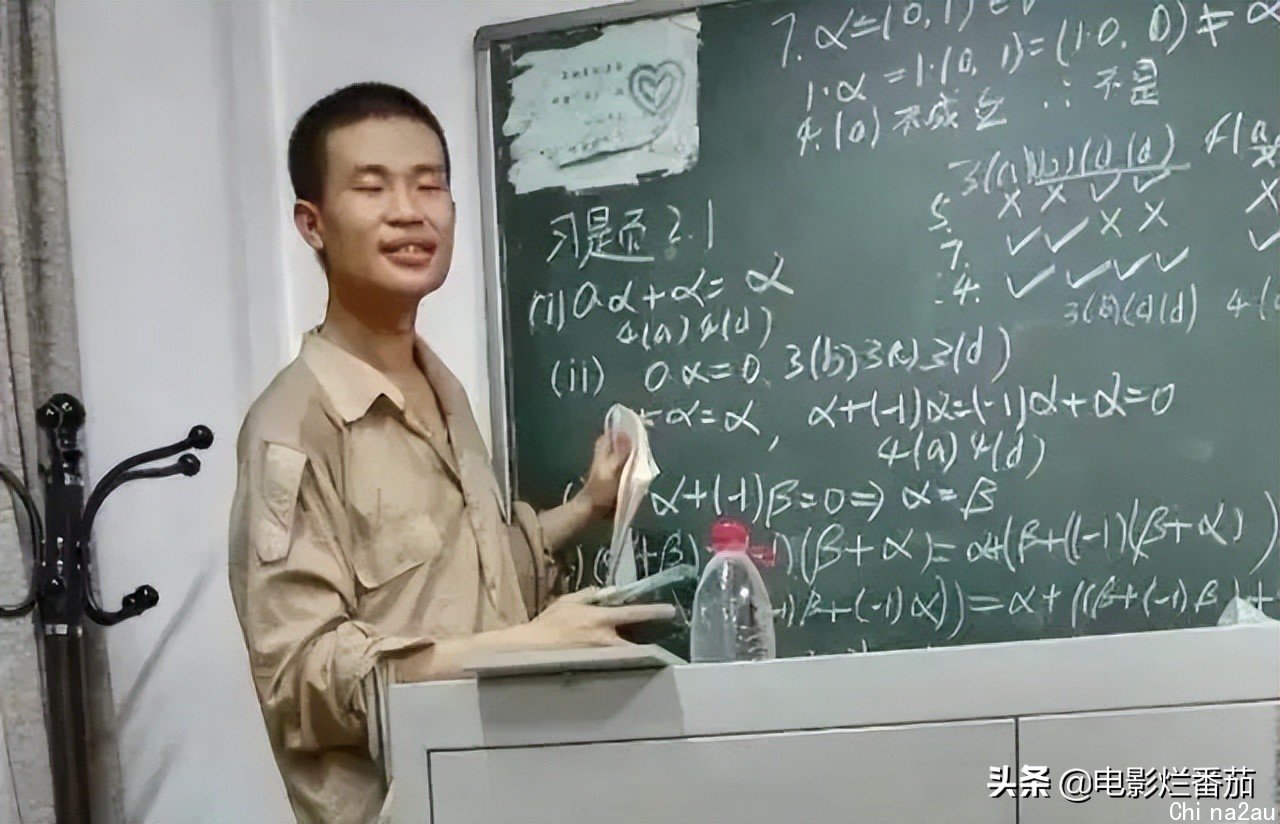 7. α=(0,1)∈V
1·α=1·(0,1)=(1·0,0)≠α
4.(a)不成立 ∴不是
3(a)(b)(c)(d) 4(a
5. × × ✓ ✓ ×
7. ✓ ✓ × × ✓
4. ✓ ✓ ✓ ✓
3(b)(d)(d) 4(
习题 2.1
(i) 0α+α=α
4(a) 4(d)
(ii) 0·α=0. 3(b) 3(c) 3(d)
α=α, α+(-1)α=(-1)α+α=0
4(a) 4(d)
α+(-1)β=0⇒α=β
+β) 1)(β+α)=α+(β+((-1)(β+α))
1)β+(-1)α))=α+((β+(-1)β)+
头条 @电影烂番茄
Chi na2au